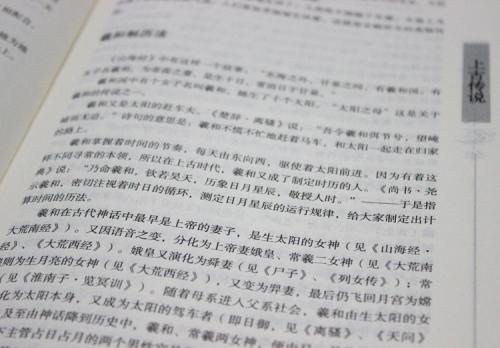 上古传说
羲和制历法
《山海经》中有这样一个故事："东海之外,甘泉之间,有羲和国。有
女子名羲和,为帝俊之妻,是生十日,常浴日于甘泉。"
羲和国中有个女子名叫羲和,她生了十个太阳。"太阳之母"这是关于
羲和的传说之一。
羲和又是太阳的赶车夫。《楚辞·离骚》说："吾令羲和弭节兮,望崦
嵫而未迫。"诗句的意思是：羲和不慌不忙地赶着马车,和太阳一起走在归家
的路上。
羲和掌握着时间的节奏,每天由东向西,驱使着太阳前进。因为有着这
样不同寻常的本领,所以在上古时代,羲和又成了制定时历的人。《尚书·尧
典》说："乃命羲和,钦若昊天,历象日月星辰,敬授人时。"———于是指
示羲和,密切注视着时日的循环,测定日月星辰的运行规律,给大家制定出计
算时间的历法。
羲和在古代神话中最早是上帝的妻子,是生太阳的女神（见《山海经·
大荒南经》）。又因语音之变,分化为上帝妻娥皇、常羲二女神（见《大荒南
经》、《大荒西经》）。娥皇又演化为舜妻（见《尸子》、《列女传》）；常
羲则为生月亮的女神（见《大荒西经》）,又变为羿妻,最后仍飞回月宫为嫦
（见《淮南子·览冥训》）。随着母系进入父系社会,羲和由生太阳的女
化为太阳本身,又成为太阳的驾车者（即日御,见《离骚》、《天问》
及由神话降到历史中,羲和、常羲两女神,便由
下主管占日占月的两个男性